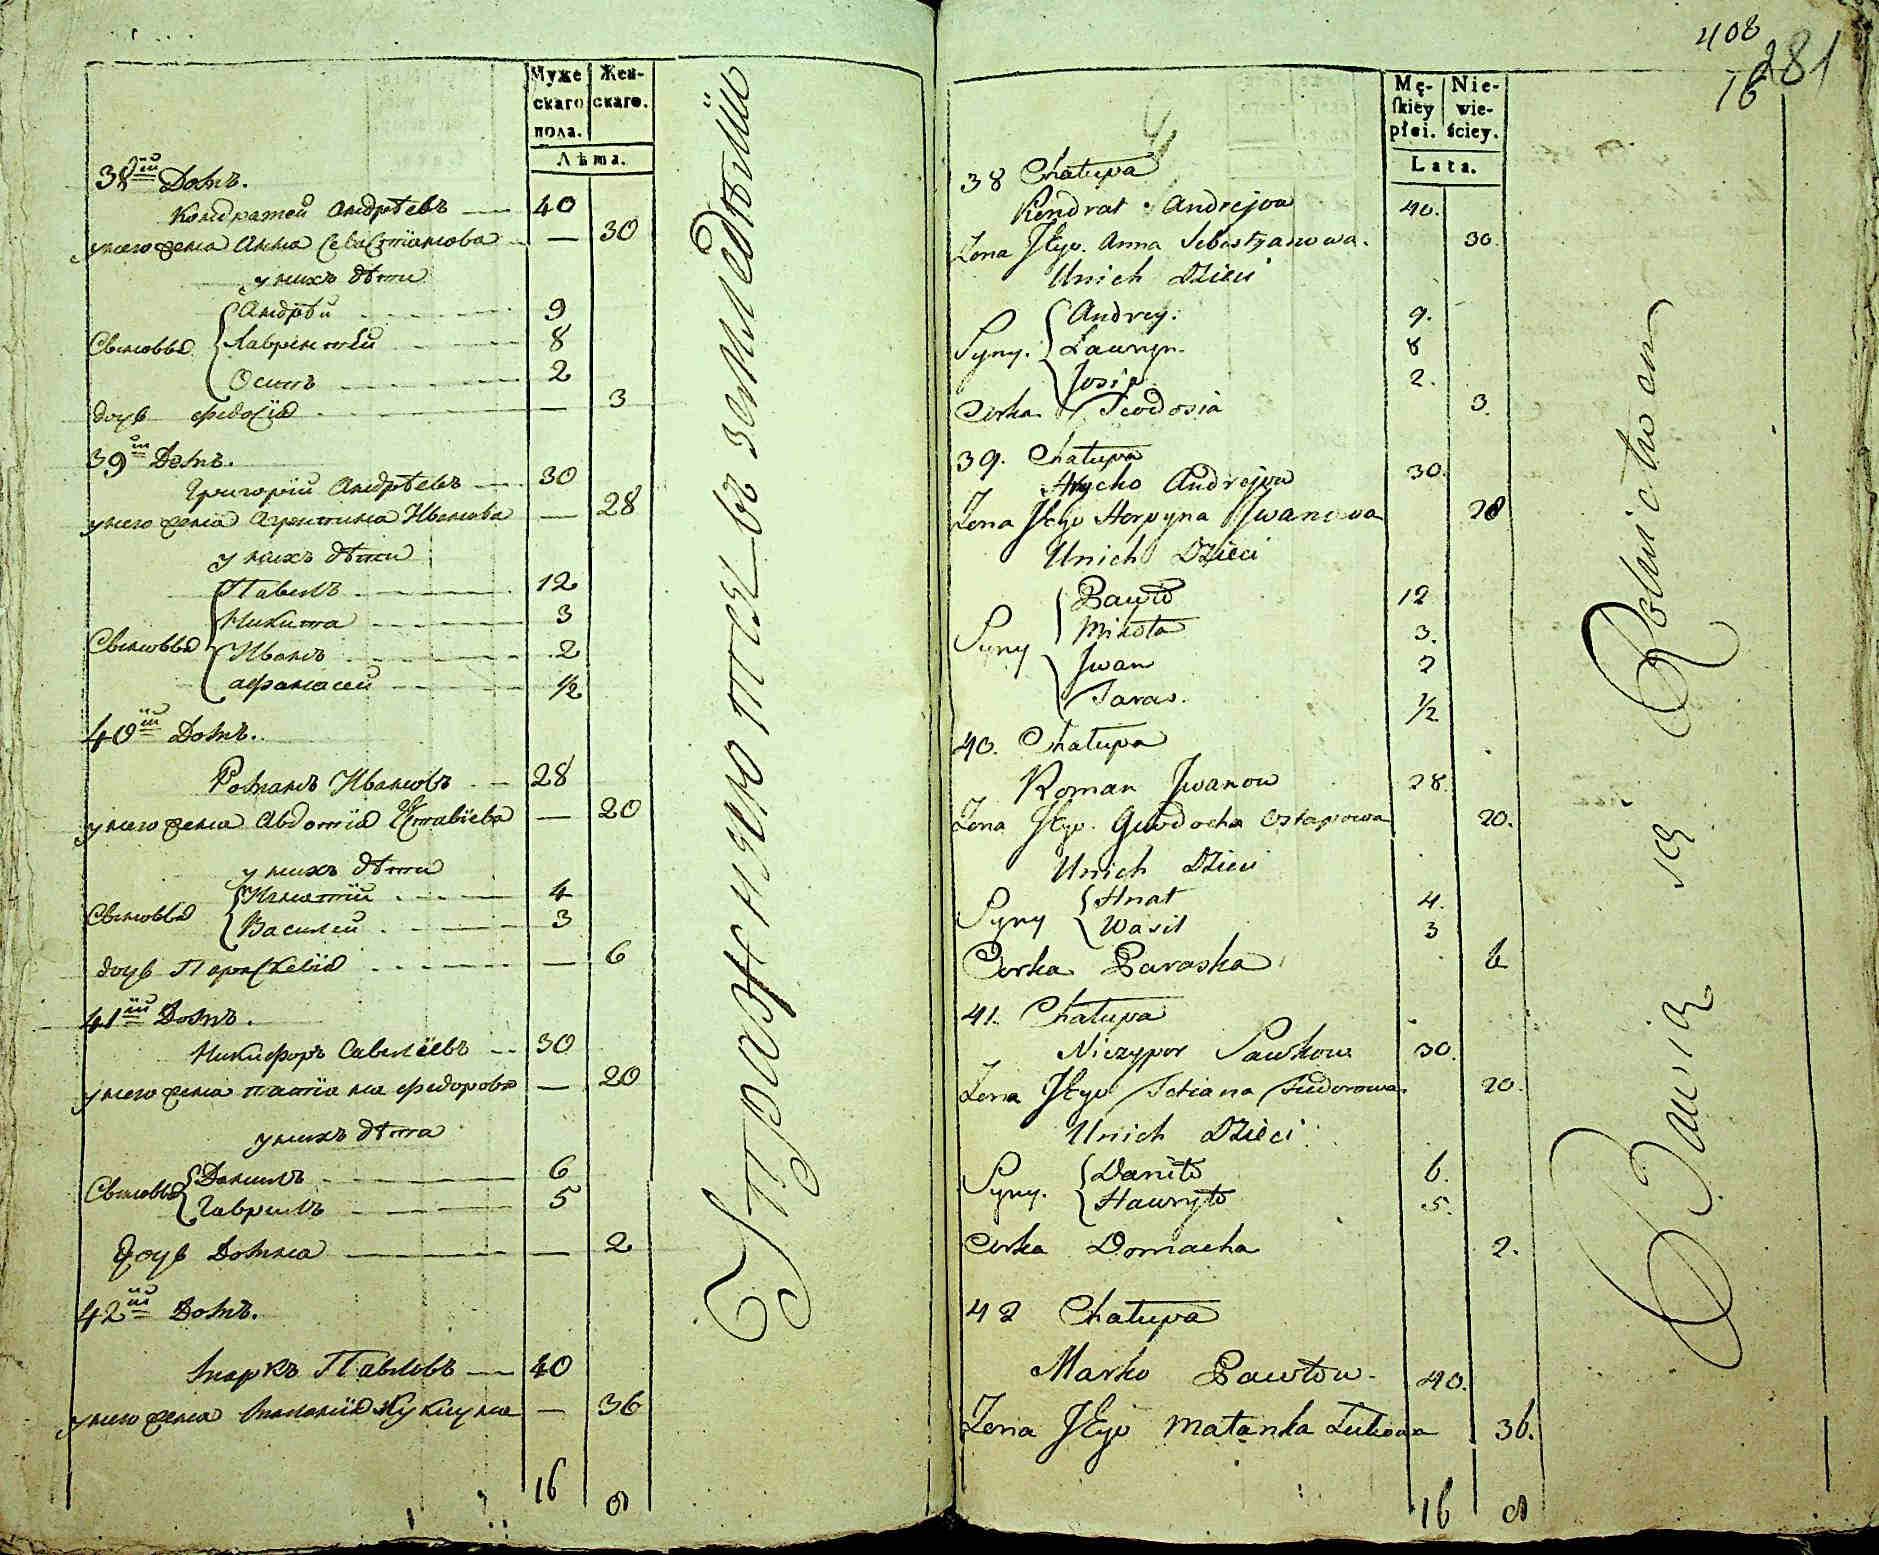 Муже
скаго
пола.
Жен-
скаго.
Лѣта.
38й Домъ.
Кондратей Андрѣевъ 40
у него жена Анна Севастїанова — 30
у нихъ дѣти
Сыновья
Андрѣй 9
Лаврентей 8
Осипъ 2
дочь Федосїя — 3
39й Домъ.
Григорїй Андрѣевъ 30
у него жена Агрипина Иванова — 28
у нихъ дѣти
Сыновья
Павелъ 12
Никита 3
Иванъ 2
Афанасей ½
40й Домъ.
Романъ Ивановъ 28
у него жена Авдотїя — 20
у нихъ дѣти
Сыновья
Игнатїй 4
Василей 3
дочь Параскевїя — 6
41й Домъ.
Никифоръ Савелїевъ 30
у него жена татїана Федорова — 20
у нихъ дѣти
Сыновья
Данилъ 6
Гаврилъ 5
Дочь Домна — 2
42й Домъ.
Маркъ Павловъ 40
у него жена Маланїя — 36
16 8
Упражняются въ земледѣлїи
408
281
16
Mę-
skiey
płci.
Nie-
wie-
ściey.
Lata.
38 Chałupa
Kondrat Andrejow 40.
Zona Jego Anna Sebestyanowa. 30.
Unich Dzieci
Syny.
Andrey. 9.
Ławryn 8
Josip 2.
Corka Teodosia 3.
39. Chałupa
Hrycko Andrejow 30.
Zona Jego Horpyna Jwanowa 28
Unich Dzieci
Syny
Pawło 12
Mikoła 3.
Jwan 2
Taras. ½
40. Chałupa
Roman Jwanow 28.
Zona Jego Ostapowa 20.
Unich Dzieci
Syny
Hnat 4.
Wasil 3
Corka Paraska 6
41. Chałupa
Niczypor Sawkow 30.
Zona Jego Tetiana Fiedorowa 20.
Unich Dzieci
Syny.
Daniło 6.
Hawryło 5.
Corka Domacha 2.
42 Chałupa
Marko Pawłow 40.
Zona Jego Małanka Łukowa 36.
16 8
Bawią się Rolnictwem